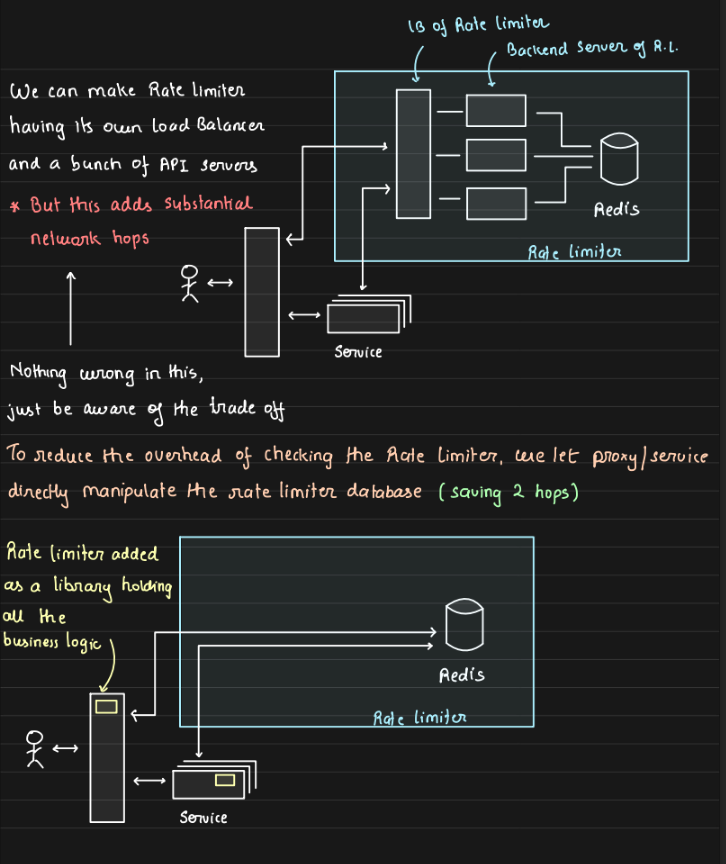 LB of Rate limiter
Backend Server of R.L.
We can make Rate limiter
having its own load Balancer
and a bunch of API servers
* But this adds substantial
network hops
Redis
Rate limiter
Service
Nothing wrong in this,
just be aware of the trade off
To reduce the overhead of checking the Rate Limiter, we let proxy/service
directly manipulate the rate limiter database (saving 2 hops)
Rate limiter added
as a library holding
all the
business logic
Redis
Rate limiter
Service